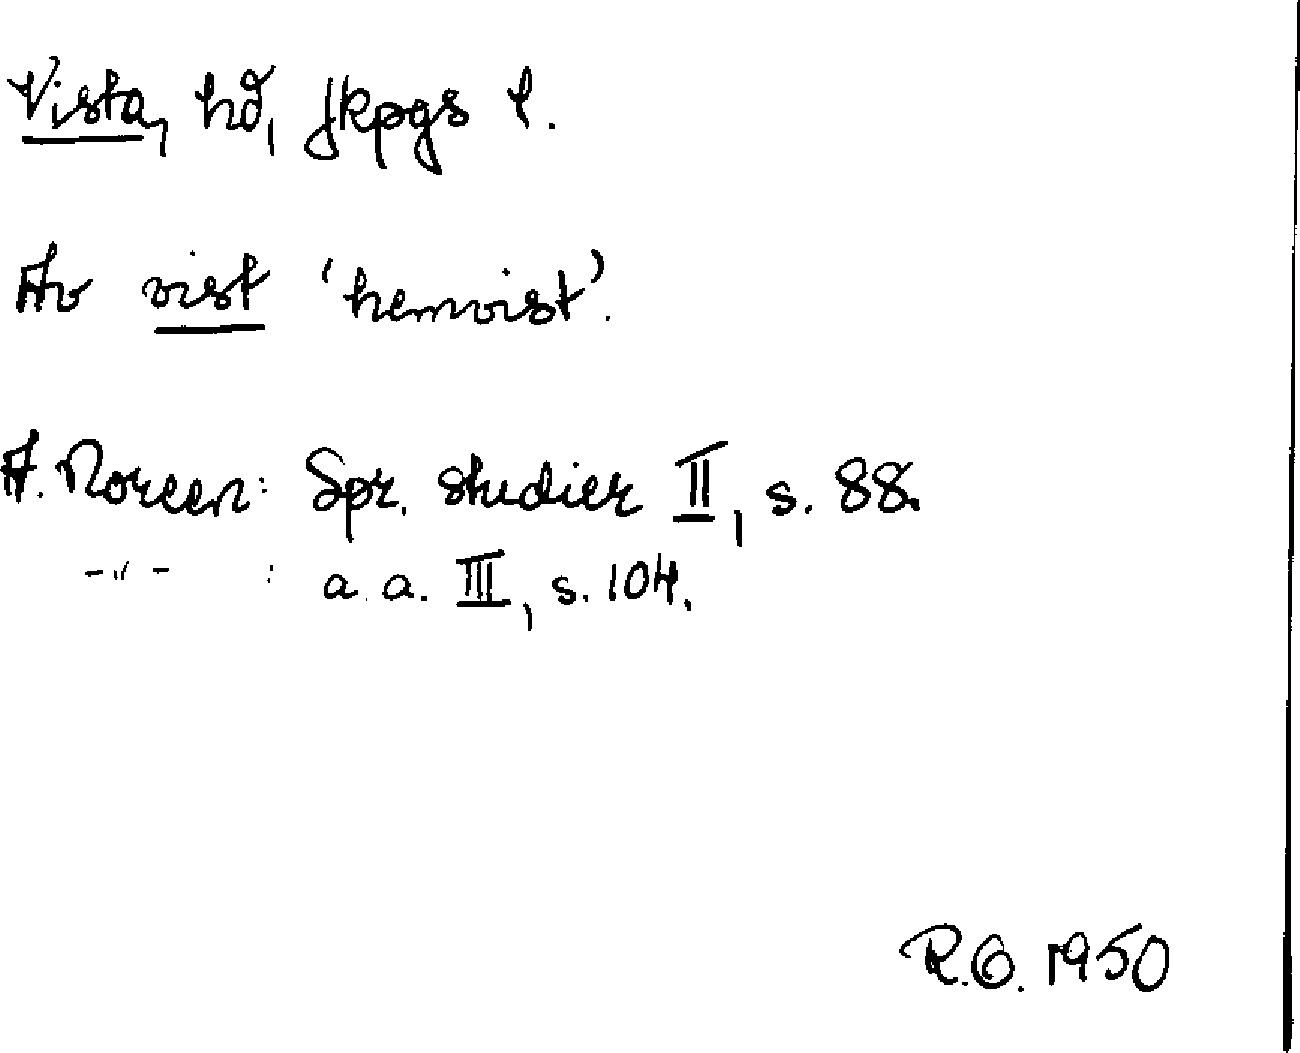 Vista, hd, Jkpgs l.
Av vist 'hemvist'.
A. Noreen: Spr. studier II, s. 88.
-"- : a. a. III, s. 104.
R.O. 1950